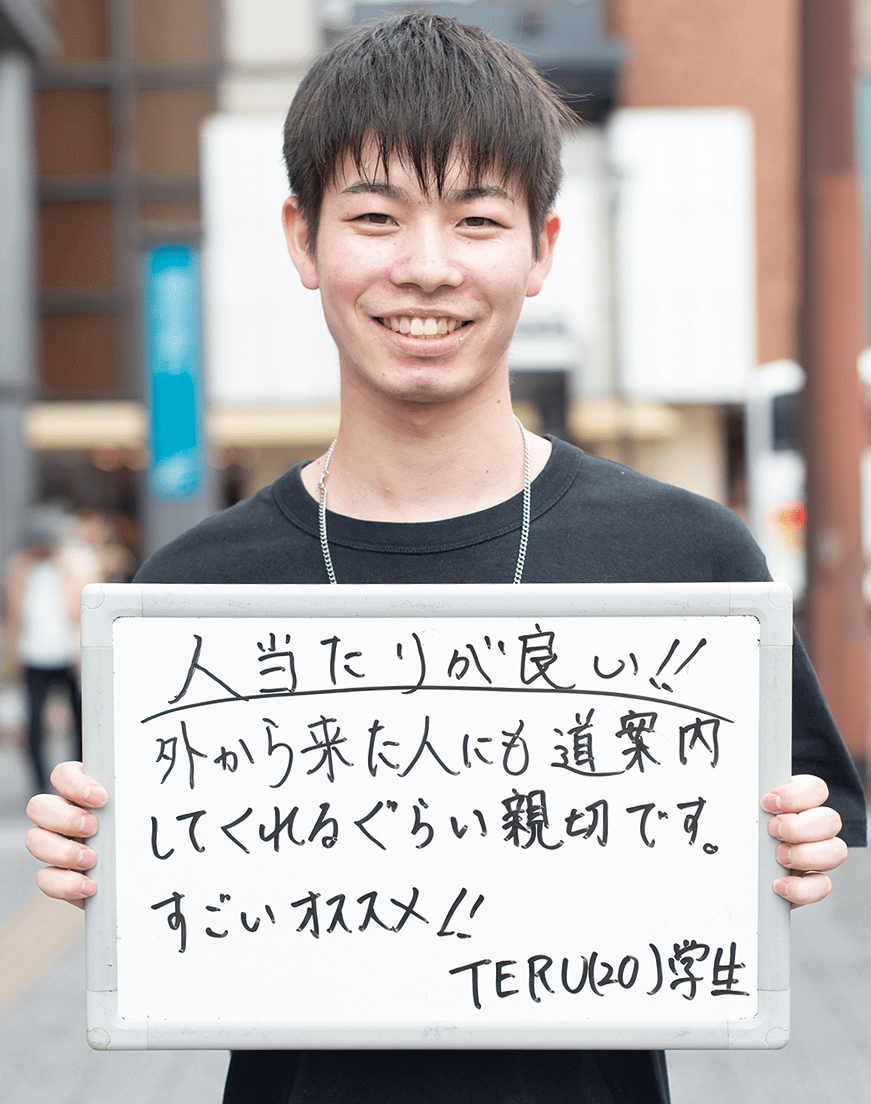 人当たりが良い!!
外から来た人にも道案内
してくれるぐらい親切です。
すごいオススメ!!
TERU(20)学生